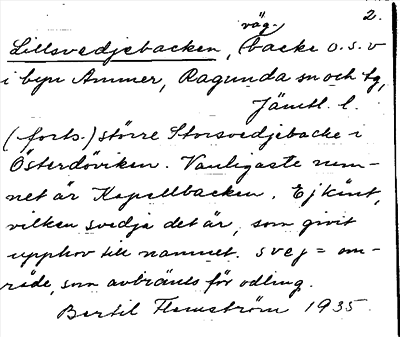 2.
väg-
Lillsvedjebacken, (backe o.s.v
i byn Ammer, Ragunda sn och tg,
Jämtl. l.
(forts.) större Storsvedjebacke i
Österdöviken. Vanligaste nam-
net är Kapellbacken. Ej känt,
vilken svedja det är, som givit
upphov till namnet. svej = om-
råde, som avbränts för odling.
Bertil Flemström 1935.